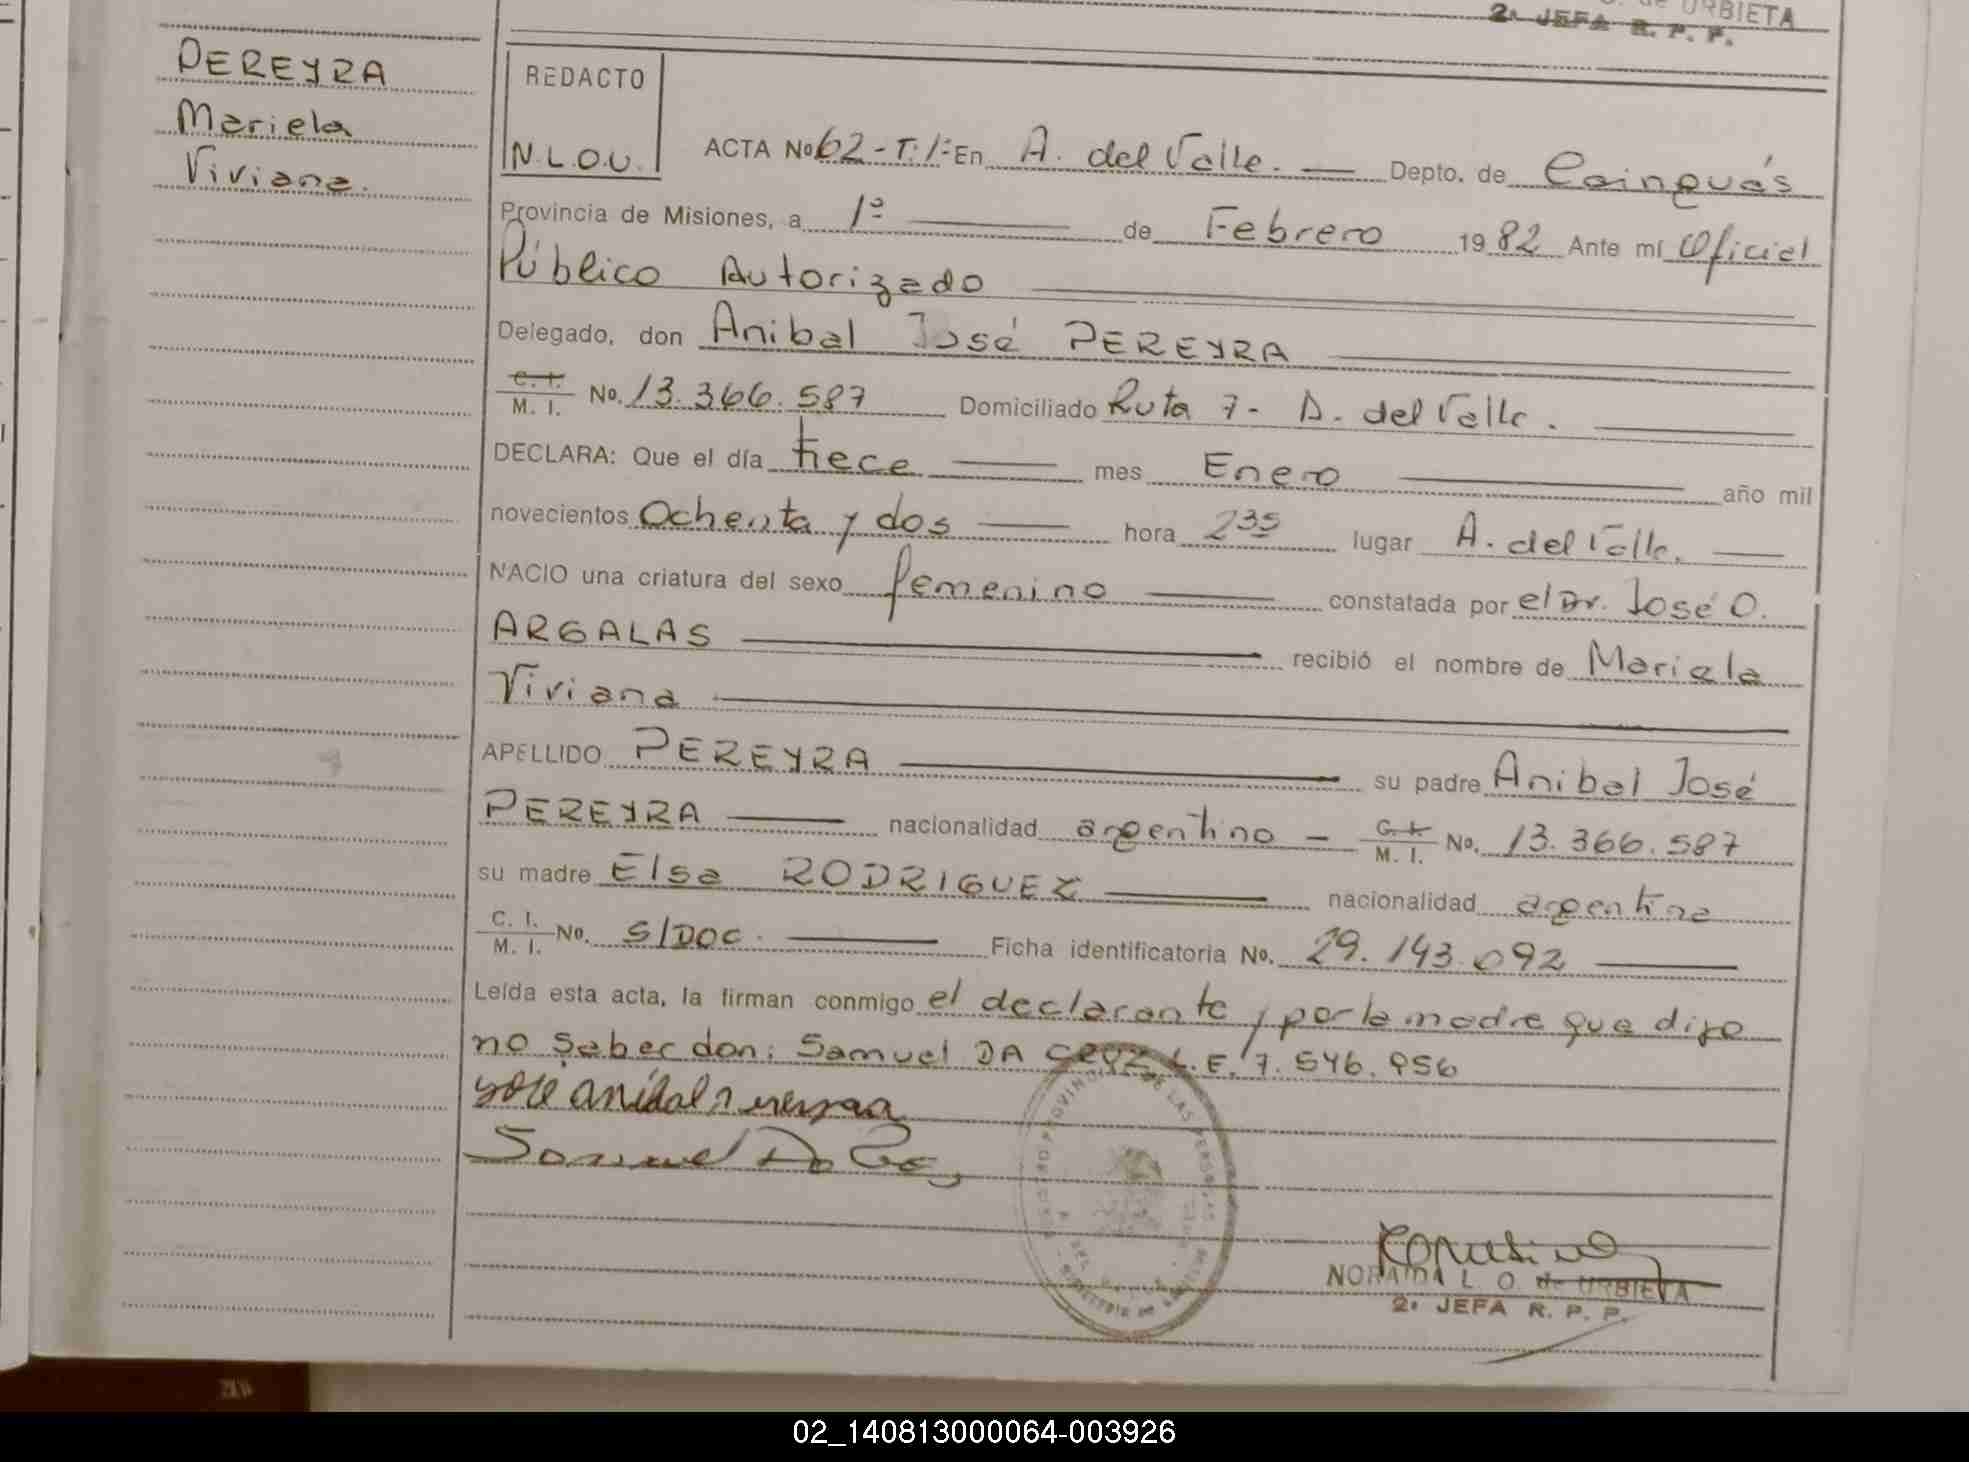 de URBIETA
2ª JEFA R. P. P.
PEREYRA
Mariela
Viviana.
REDACTO
N.L.O.U.
ACTA No 62-T.1º En A. del Valle. — Depto. de Cainguás
Provincia de Misiones, a 1º — de Febrero 1982 Ante mí Oficial
Público Autorizado —
Delegado, don Anibal José PEREYRA —
C. I. / M. I. No. 13.366.587 Domiciliado Ruta 7- A. del Valle. —
DECLARA: Que el día trece — mes Enero — año mil
novecientos Ochenta y dos — hora 2 35 lugar A. del Valle. —
NACIO una criatura del sexo femenino — constatada por el Dr. José O.
ARGALAS — recibió el nombre de Mariela
Viviana —
APELLIDO PEREYRA — su padre Anibal José
PEREYRA — nacionalidad argentino — C. I. / M. I. No. 13.366.587
su madre Elsa RODRIGUEZ — nacionalidad argentina
C. I. / M. I. No. S/DOC. — Ficha identificatoria No. 29.143.092 —
Leída esta acta, la firman conmigo el declarante y por la madre que dijo
no saber don: Samuel DA CRUZ L.E. 7.546.956
José anibal Pereyra
Samuel Da
NORAIDA L. O. de URBIETA
2ª JEFA R. P. P.
02_140813000064-003926